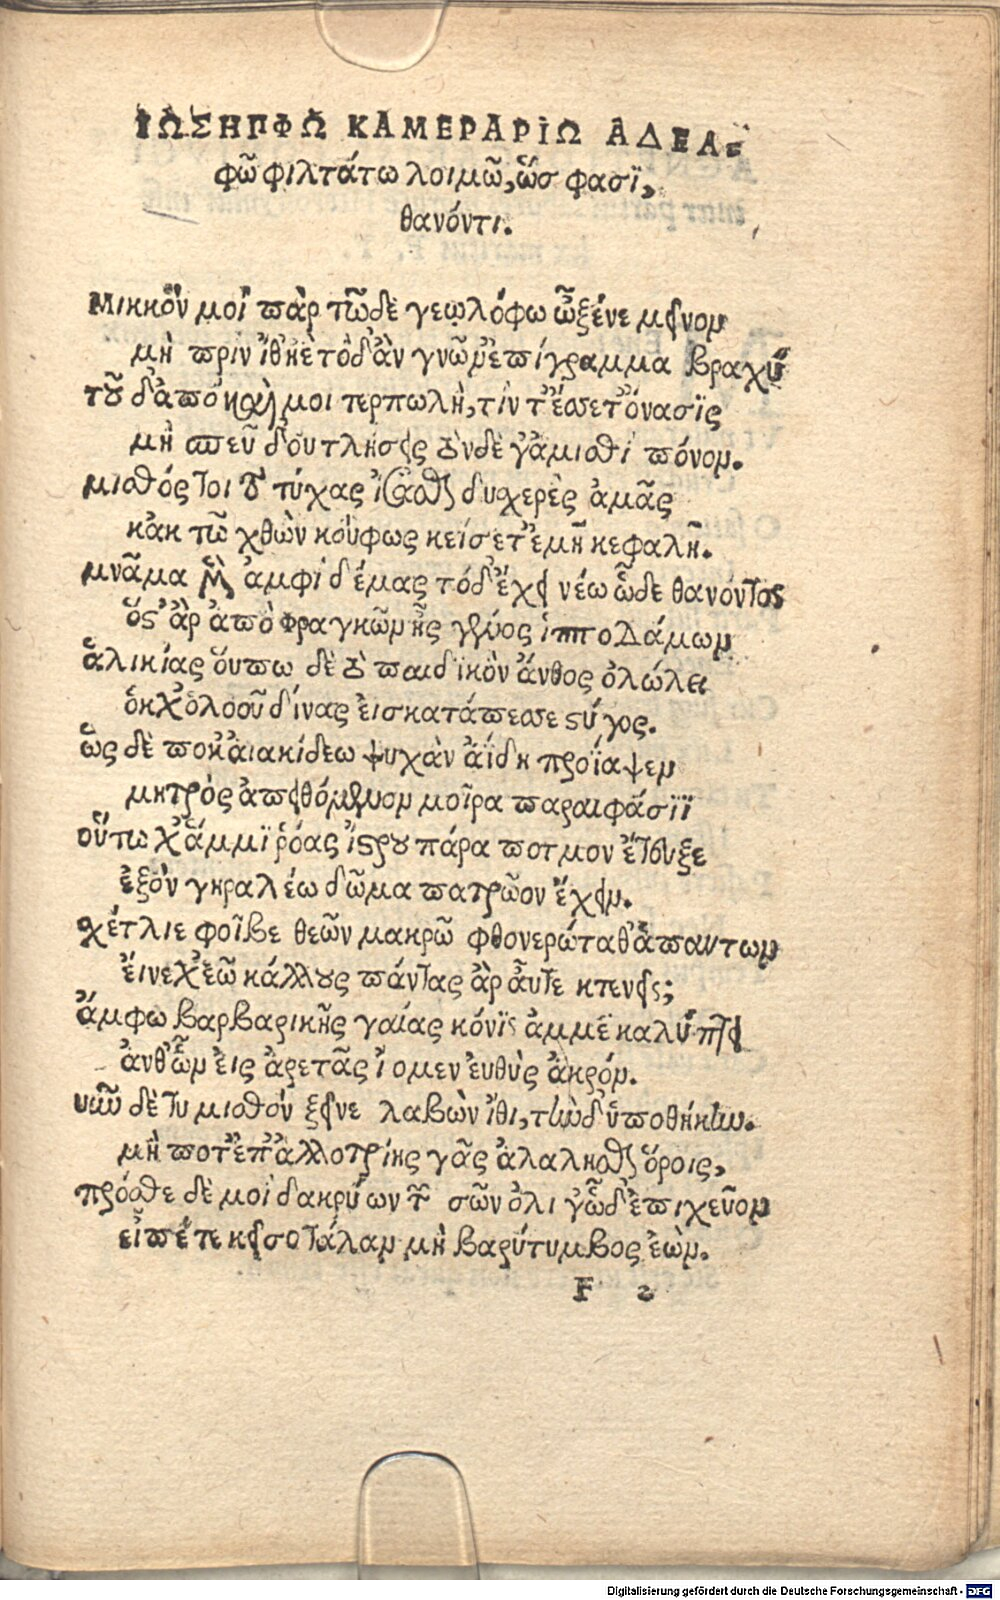 ΙΩΣΗΠΦΩ ΚΑΜΕΡΑΡΙΩ ΑΔΕΛ-
φῶ φιλτάτω λοιμῶ, ὥσ φασϊ,
θανόντι.
Μικκὸν μοὶ παρ τῶδὲ γεωλόφω ὦξένε μεῖνον
μὴ πριν ἴθηὲ τόδ' ἂν γνῶμ' ἐπίγραμμα βραχύ
τοῦ δ' ἀπὸ καὶ μοι τερπωλὴ, τίν τ' ἔσσετ' ὄνασϊς
μὴ σπεῦ δ' οὐ τλήσεις οὐνδὲ γ' ἀμισθὶ πόνον.
μισθός τοι οὐ τύχας δυχερὲς ἁμᾶς
κἀκ τῶ χθὼν κούφως κείσετ' ἐμῆ κεφαλῆ.
μνᾶμα ἀμφὶ δέμας τόδ' ἔχει νέω ὧδε θανόντος
ὅς' ἂρ ἀπὸ φραγκῶμ ἦς γένος ἱπποδάμων
ἁλικίας οὔπω δὲ οὐ παιδϊκὸν ἄνθος ὀλώλει
ὁκχ' ὀλοοῦ δίνας ἐισκατάπεσε στύγος.
ὣς δὲ ποκ' ἀιακίδεω ψυχὰν ἀΐδη προΐαψεν
μητρὸς ἀπειθόμενον μοῖρα παραιφάσϊϊ
οὕπω χ' ἄμμϊ ῥόας ἴστρου πάρα ποτμον ἔτευξε
ἐξὸν γηραλέω δῶμα πατρῶον ἔχειν.
σχέτλιε φοῖβε θεῶν μακρῶ φθονερώταθ' ἁπαντων
ἕινεχ' ἑῶ κάλλους πάντας ἂρ αὖτε κτενεῖς;
ἄμφω βαρβαρικῆς γαίας κόνϊς ἀμμὲ καλύπτει
ἀνθ' ὧμ εἰς ἀρετᾶς ἴομεν ἐυθὺς ἄκρόν.
νῦν δὲ τυ μισθὸν ξεῖνε λαβὼν ἴθι, τὴν δ' ὑποθήκην.
μὴ ποτ' ἐπ' ἀλλοτρίης γᾶς ἀλαλησθαι ὅροις,
πρόσθε δὲ μοὶ δακρύων τῶν σῶν ὀλίγ' ὧδ' ἐπιχεῦον
εἰπέ τε κεῖσο τάλαν μὴ βαρύτυμβος ἐὼν.
F 2
Digitalisierung gefördert durch die Deutsche Forschungsgemeinschaft - DFG